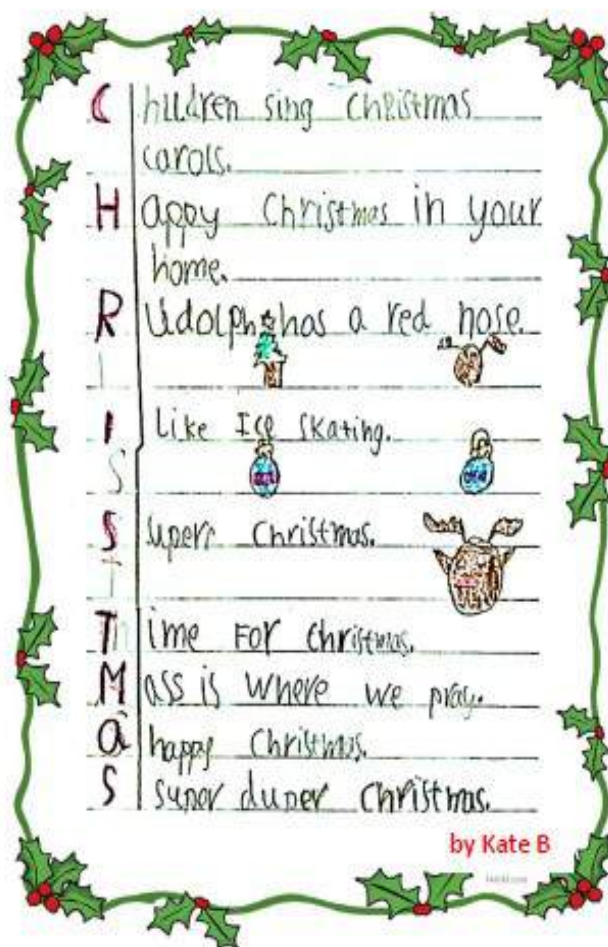 Children sing Christmas
carols.
Happy Christmas in your
home.
Rudolph has a red nose.
I like Ice skating.
Superr Christmas.
Time For Christmas.
Mass is where we pray.
a happy Christmas.
S super duper Christmas.
by Kate B